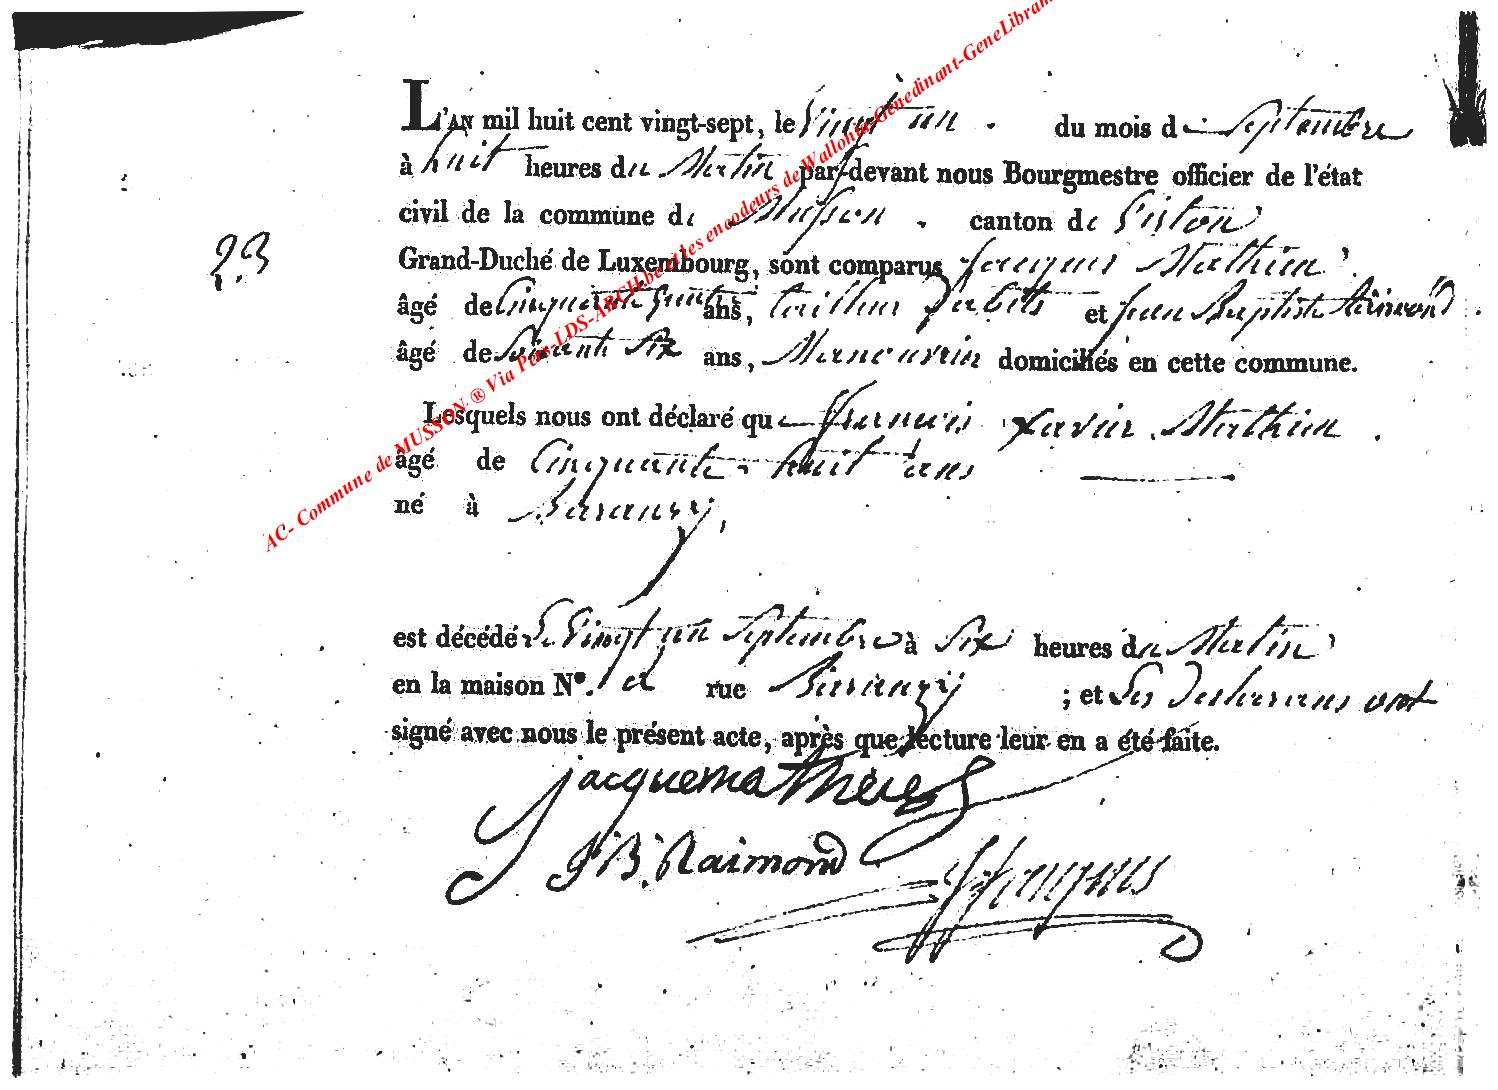 L'AN mil huit cent vingt-sept, le Vingt un . du mois de Septembre
à huit heures du Matin par-devant nous Bourgmestre officier de l'état
civil de la commune de Musson . canton de Virton
Grand-Duché de Luxembourg, sont comparus Jacques Mathieu
23
âgé de Cinquante ans, tailleur d'habits et Jean Baptiste Raimond .
âgé de Soixante Six ans, Manouvrier domiciliés en cette commune.
Lesquels nous ont déclaré que François Xavier Mathieu .
âgé de Cinquante huit ans
né à Baranzy,
est décédé le Vingt un Septembre à Six heures du Matin
en la maison N°. rue Baranzy ; et les déclarans ont
signé avec nous le présent acte, après que lecture leur en a été faite.
jacque mathieu
J B. Raimond
AC- Commune de MUSSON ® Via Pois-LDS-ARCH.be et les encodeurs de Wallonie-Genedinant-GeneLibram